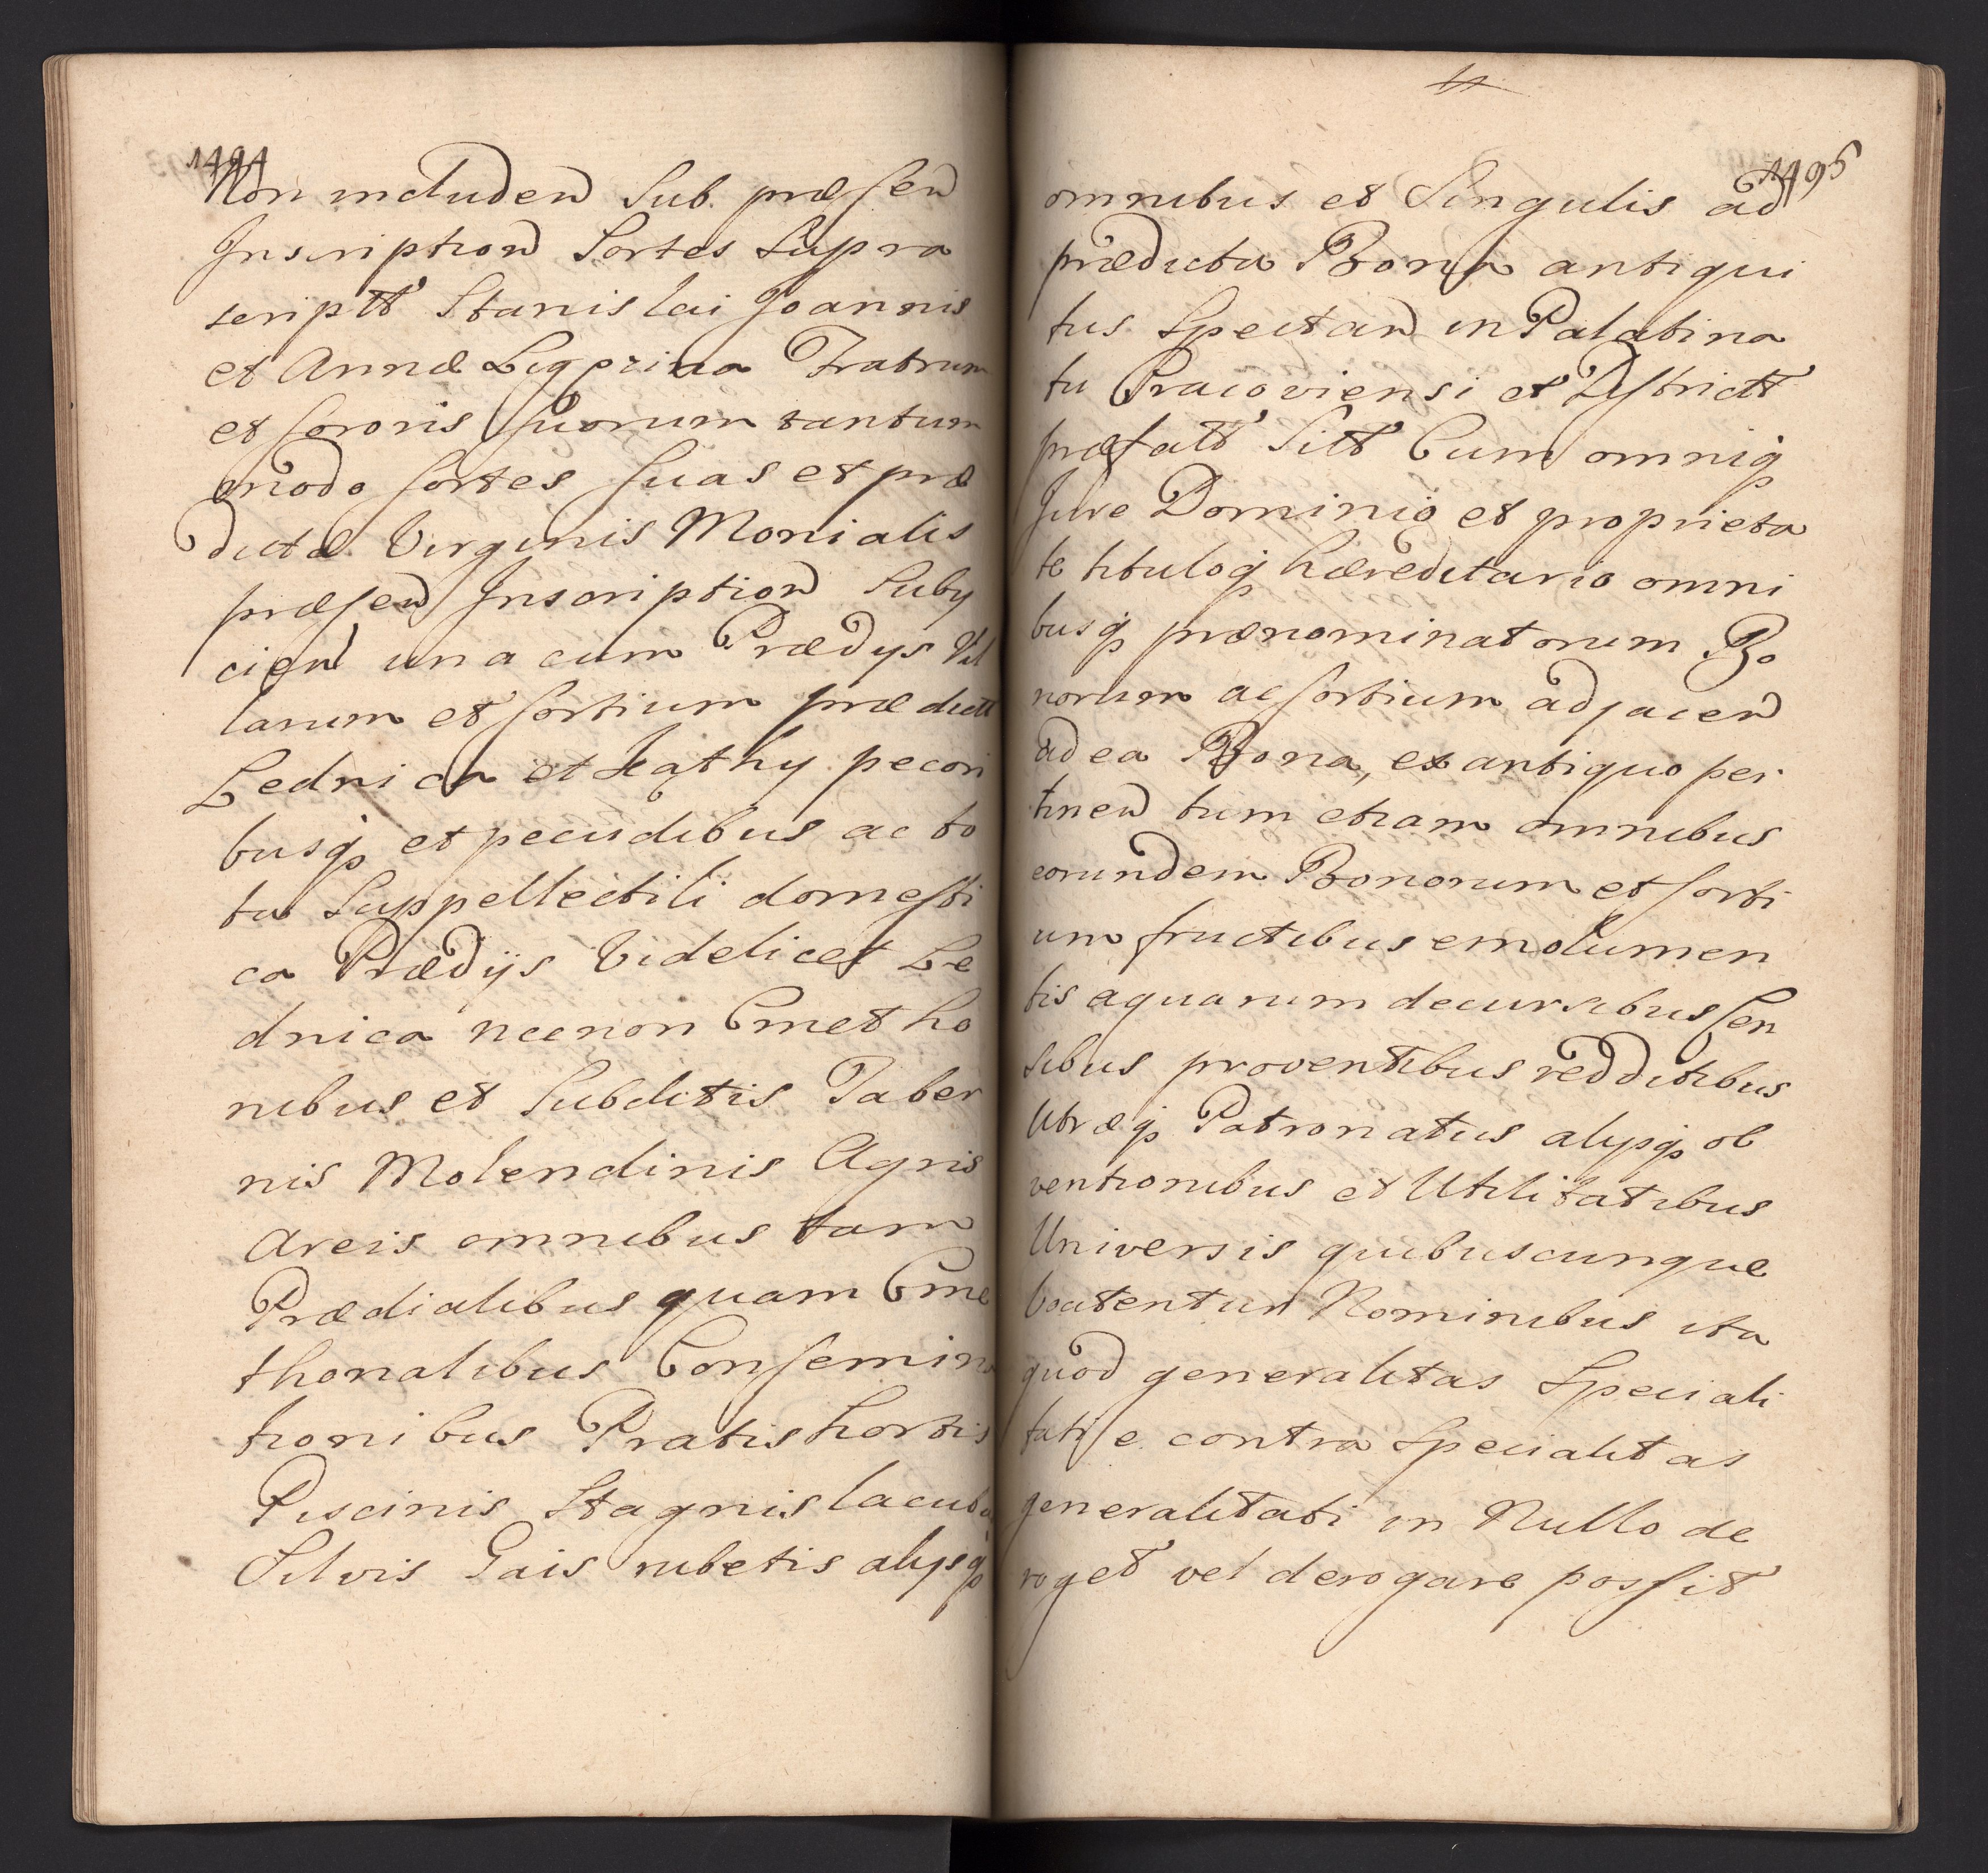 1494
Non includen Sub præsen
Inscription Sortes Supra
scriptt Stanislai Joannis
et Annæ Fratrum
et sororis suorum tantum
modo sortes suas et præ
dictæ Virginis Monialis
præsen Inscription Suby
cien una cum Prædys Vil
larum et sortium prædictt
Lednica et Kąthy pecori
busq et pecudibus ac to
ta Suppellectili domesti
ca Prædijs Videlicet Le
dnica necnon Cmetho
nibus et Subditis Taber
nis Molendinis Agris
Areis omnibus tam
Prædialibus quam Cme
thonalibus Consemina
tionibus Pratis hortis
Piscinis Stagnis lacubus
Silvis Gais rubetis alysq
1495
omnibus et Singulis ad
prædicta Bona antiqui
tus Spectan in Palatina
tu Cracoviensi et Districtt
præfatt Sitt Cum omniq
Jure Dominio et proprieta
te tituloq hæreditario omni
busq prænominatorum Bo
norum ac sortium adjacen
ad ea Bona, ex antiquo per
tinen tum etiam omnibus
eorundem Bonorum et sorti
um fructibus emolumen
tis aquarum decursibus Cen
sibus proventibus redditibus
Utræq Patronatus alysq ob
ventionibus et Utilitatibus
Universis quibuscunque
Nominibus ita
quod generalitas Speciali
tati e contra Specialitas
generalitati in Nullo de
roget vel derogare possit